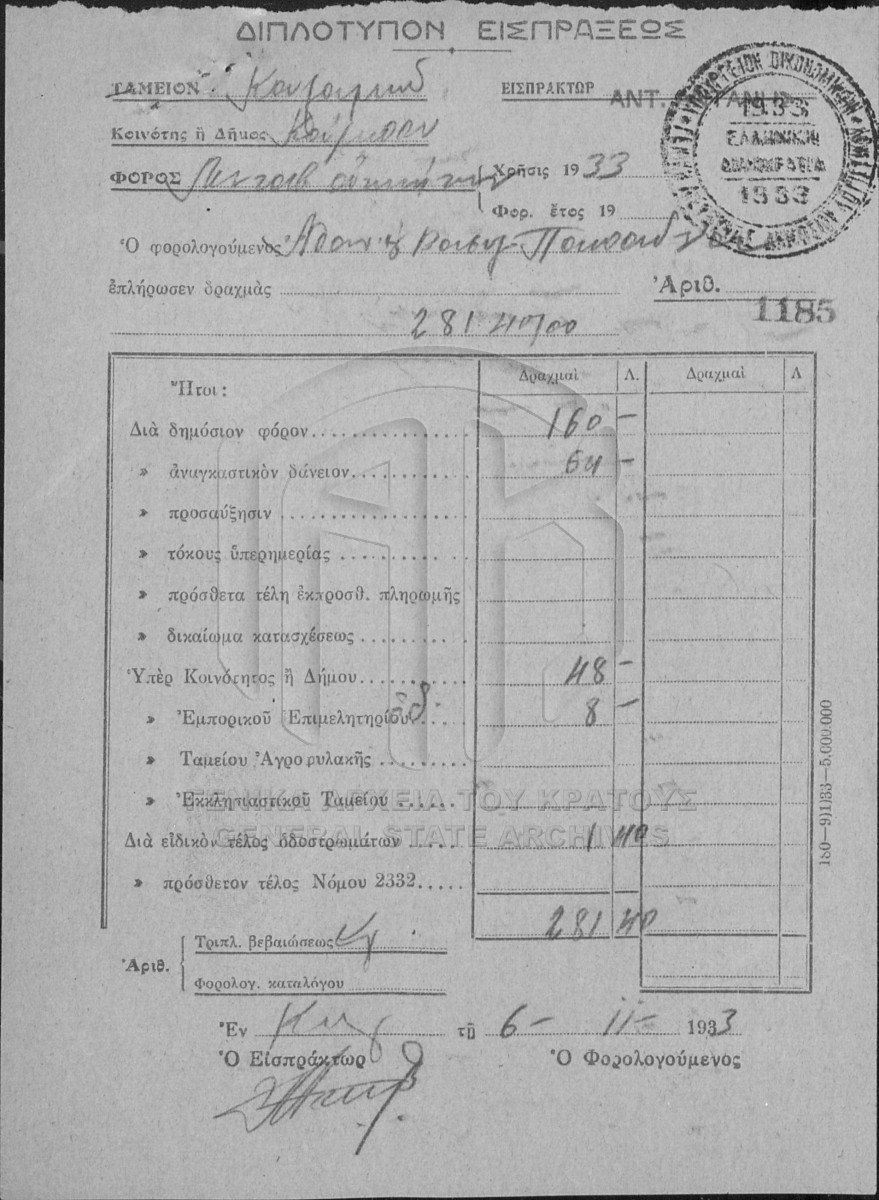 ΔΙΠΛΟΤΥΠΟΝ ΕΙΣΠΡΑΞΕΩΣ
ΤΑΜΕΙΟΝ
ΕΙΣΠΡΑΚΤΩΡ ΑΝΤ.
Κοινότης ἢ Δῆμος
ΦΟΡΟΣ
Χρῆσις 1933
Φορ. ἔτος 19
1933
ΕΛΛΗΝΙΚΗ
ΔΗΜΟΚΡΑΤΙΑ
1933
Ὁ φορολογούμενος
ἐπλήρωσεν δραχμὰς
Ἀριθ. 1185
281 40/00
Ἤτοι: Δραχμαὶ Λ. Δραχμαὶ Λ
Διὰ δημόσιον φόρον 160 –
» ἀναγκαστικὸν δάνειον 64 –
» προσαύξησιν
» τόκους ὑπερημερίας
» πρόσθετα τέλη ἐκπροσθ. πληρωμῆς
» δικαίωμα κατασχέσεως
Ὑπὲρ Κοινότητος ἢ Δήμου 48 –
» Ἐμπορικοῦ Ἐπιμελητηρίου 8 –
» Ταμείου Ἀγροφυλακῆς
» Ἐκκλησιαστικοῦ Ταμείου
ΓΕΝΙΚΑ ΑΡΧΕΙΑ ΤΟΥ ΚΡΑΤΟΥΣ
GENERAL STATE ARCHIVES
Διὰ εἰδικὸν τέλος ὁδοστρωμάτων 1 40
» πρόσθετον τέλος Νόμου 2332
281 40
180—9)1)33—5.000.000
Ἀριθ.
Τριπλ. βεβαιώσεως
Φορολογ. καταλόγου
Ἐν τῇ 6 – 11 – 1933
Ὁ Εἰσπράκτωρ Ὁ Φορολογούμενος